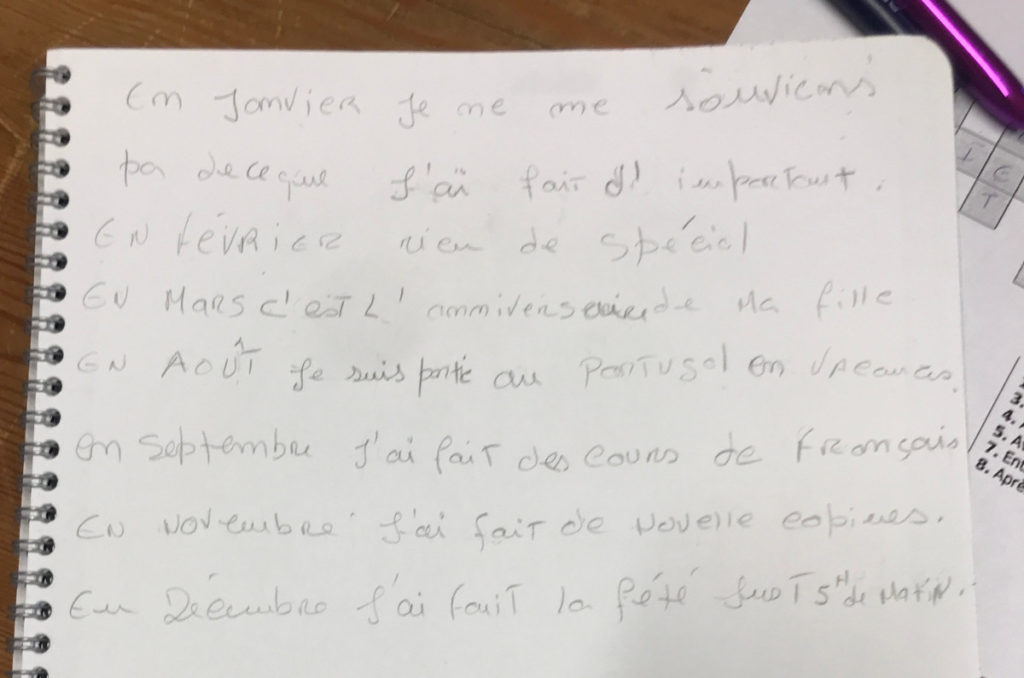 En Janvier Je ne me souviens
pa de ceque J'ai fait d' important.
EN FÉVRIER rien de spécial
EN MARS c'est L' anniversaire de Ma fille
EN AOÛT Je suis partie au PORTUGAL en VACANCES.
en Septembre J'ai fait des cours de Français
EN NOVEMBRE J'ai fait de Novelle copines.
En Décembre J'ai fait la fété 5H de Matin.
I
E
T
3.
4.
5.
7. Ent
8. Aprè